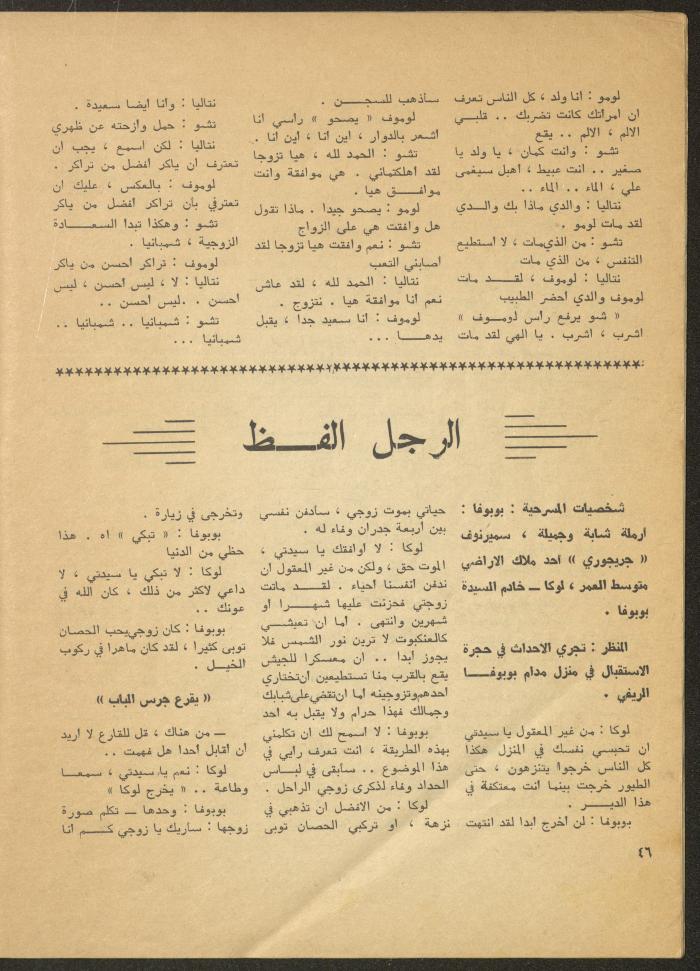 لومو : انا ولد ، كل الناس تعرف
ان امرأتك كانت تضربك .. قلبي
الالم ، الالم .. يقع
تشو : وانت كمان ، يا ولد يا
صغير .. انت عبيط ، اهبل سيغمى
علي ، الماء .. الماء ..
نتاليا : والدي ماذا بك والدي
لقد مات لومو .
تشو : من الذي مات ، لا استطيع
التنفس ، من الذي مات
نتاليا : لوموف ، لقد مات
لوموف والدي احضر الطبيب
« شو يرفع راس لوموف »
اشرب ، اشرب . يا الهي لقد مات
سأذهب للسجن .
لوموف « يصحو » راسي انا
اشعر بالدوار ، اين انا ، اين انا .
تشو : الحمد لله ، هيا تزوجا
لقد اهلكتماني . هي موافقة وانت
موافق هيا .
لومو : يصحو جيدا . ماذا تقول
هل وافقت هي على الزواج
تشو : نعم وافقت هيا تزوجا لقد
اصابني التعب
نتاليا : الحمد لله ، لقد عاش
نعم انا موافقة هيا . نتزوج .
لوموف : انا سعيد جدا ، يقبل
يدها ...
نتاليا : وأنا ايضا سعيدة .
تشو : حمل وازحته عن ظهري
نتاليا : لكن اسمع ، يجب ان
تعترف ان ياكر افضل من تراكر .
لوموف : بالعكس ، عليك ان
تعترفي بأن تراكر أفضل من ياكر
تشو : وهكذا تبدا السعادة
الزوجية ، شمبانيا .
لوموف : تراكر احسن من ياكر
نتاليا : لا ، ليس احسن ، ليس
احسن . . ليس احسن ..
تشو : شمبانيا .. شمبانيا ..
شمبانيا ...
الرجل الفظ
شخصيات المسرحية : بوبوفا :
ارملة شابة وجميلة ، سميرنوف
« جريجوري » احد ملاك الاراضي
متوسط العمر ، لوكا ــ خادم السيدة
بوبوفا .
المنظر : تجري الاحداث في حجرة
الاستقبال في منزل مدام بوبوفا
الريفي .
لوكا : من غير المعقول يا سيدتي
ان تحبسي نفسك في المنزل هكذا
كل الناس خرجوا يتنزهون ، حتى
الطيور خرجت بينما انت معتكفة في
هذا الدير .
بوبوفا : لن اخرج ابدا لقد انتهت
حياتي بموت زوجي ، سأدفن نفسي
بين أربعة جدران وفاء له .
لوكا : لا أوافقك يا سيدتي ،
الموت حق ، ولكن من غير المعقول ان
ندفن أنفسنا أحياء . لقد ماتت
زوجتي فحزنت عليها شهرا أو
شهرين وانتهى . أما ان تعيشي
كالعنكبوت لا ترين نور الشمس فلا
يجوز أبدا .. ان معسكرا للجيش
يقع بالقرب منا تستطيعين ان تختاري
احدهم وتزوجينه أما ان تقضي على شبابك
وجمالك فهذا حرام ولا يقبل به أحد
بوبوفا : لا أسمح لك ان تكلمني
بهذه الطريقة ، انت تعرف رأيي في
هذا الموضوع .. سأبقى في لباس
الحداد وفاء لذكرى زوجي الراحل .
لوكا : من الافضل ان تذهبي في
نزهة ، أو تركبي الحصان توبى
وتخرجي في زيارة .
بوبوفا : « تبكي » اه . هذا
حظي من الدنيا
لوكا : لا تبكي يا سيدتي ، لا
داعي لاكثر من ذلك ، كان الله في
عونك ..
بوبوفا : كان زوجي يحب الحصان
توبى كثيرا ، لقد كان ماهرا في ركوب
الخيل .
« يقرع جرس الباب »
ــ من هناك ، قل للقارع لا أريد
أن أقابل أحدا هل فهمت ..
لوكا : نعم يا سيدتي ، سمعا
وطاعة .. « يخرج لوكا »
بوبوفا : وحدها ــ تكلم صورة
زوجها : ساريك يا زوجي كم انا
٤٦